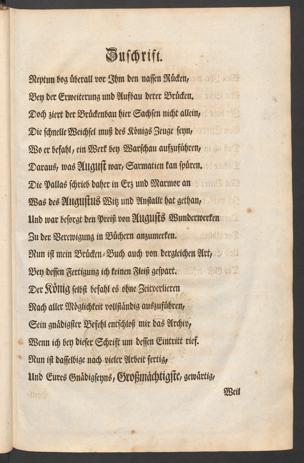 Zuschrift.
Neptun bog überall vor Ihm den nassen Rücken,
Bey der Erweiterung und Aufbau derer Brücken.
Doch ziert der Brückenbau hier Sachsen nicht allein,
Die schnelle Weichsel muß des Königs Zeuge seyn,
Wo er befahl, ein Werk bey Warschau aufzuführen,
Daraus, was August war, Sarmatien kan spüren.
Die Pallas schrieb daher in Erz und Marmor an
Was des Augustus Witz und Anstallt hat gethan,
Und war besorgt den Preiß von Augusts Wunderwerken
Zu der Verewigung in Büchern anzumerken.
Nun ist mein Brücken-Buch auch von dergleichen Art,
Bey dessen Fertigung ich keinen Fleiß gespart.
Der König selbst befahl es ohne Zeitverlieren
Nach aller Möglichkeit vollständig auszuführen,
Sein gnädigster Befehl entschloß mir das Archiv,
Wenn ich bey dieser Schrift um dessen Eintritt rief.
Nun ist dasselbige nach vieler Arbeit fertig,
Und Eures Gnädigseyns, Großmächtigste, gewärtig,
Weil